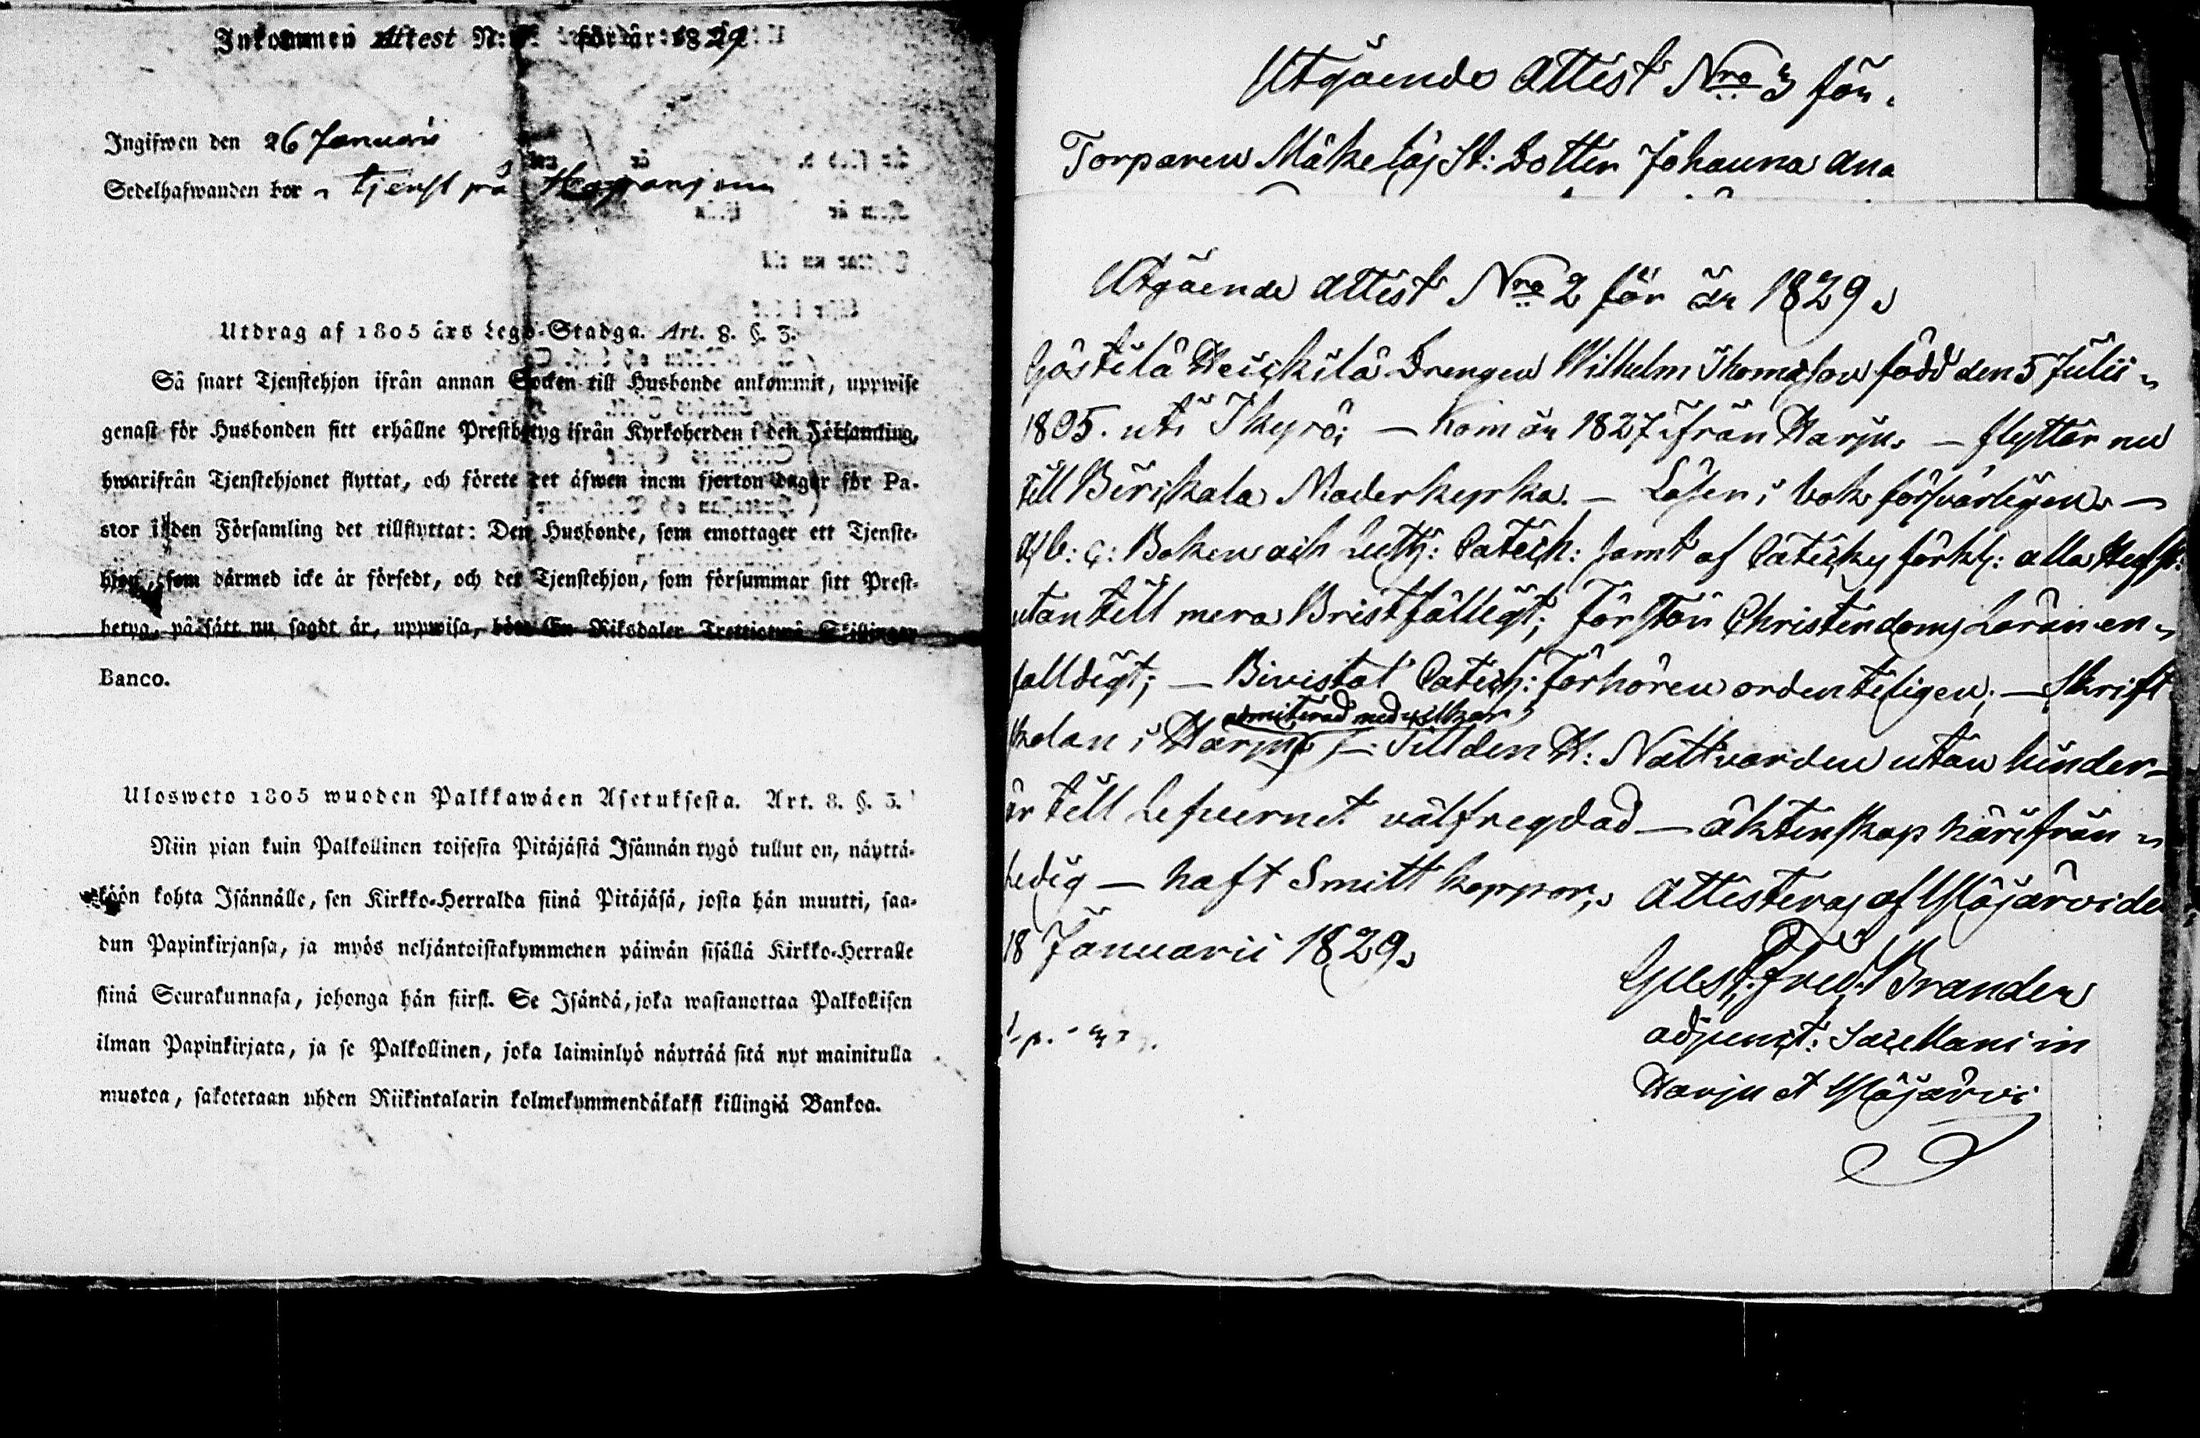 Inkommen Attest N: för år 1829
Ingifwen den 26 Januarii
Sedelhafwanden bor i tjenst på
Utdrag af 1805 års Lego-Stadga. Art. 8. §. 3.
Så snart Tjenstehjon ifrån annan Socken till Husbonde ankommit, uppwise
genast för Husbonden sitt erhållne Prestbetyg ifrån Kyrkoherden i den Församling,
hwarifrån Tjenstehjonet flyttat, och förete det äfwen inom fjorton dagar för Pa-
stor i den Församling det tillflyttat: Den Husbonde, som emottager ett Tjenste-
hjon, som därmed icke är försedt, och det Tjenstehjon, som försummar sitt Prest-
betyg, på sätt nu sagdt är, uppwisa, böte En Riksdaler Trettiotwå Skillingar
Banco.
Ulosweto 1805 wuoden Palkkawäen Asetuksesta. Art. 8. §. 3.
Niin pian kuin Palkollinen toisesta Pitäjästä Isännän tygö tullut on, näyttä-
köön kohta Isännälle, sen Kirkko-Herralda siinä Pitäjäsä, josta hän muutti, saa-
dun Papinkirjansa, ja myös neljäntoistakymmenen päiwän sisällä Kirkko-Herralle
siinä Seurakunnasa, johonga hän siirsi. Se Isändä, joka wastanottaa Palkollisen
ilman Papinkirjata, ja se Palkollinen, joka laiminlyö näyttää sitä nyt mainitulla
muotoa, sakotetaan yhden Riikintalarin kolmekymmendäkaksi killingiä Bankoa.
Utgående Attest Nro 3 för
Torparen Mäkeläs St: Dotter Johanna Ana
Utgående Attest Nro 2 för år 1829.
Göstilä Heickilä Drengen Wilhelm Thomasson född den 5 Julii
1805. uti Ikyrö; — kom år 1827 ifrån Harju. — flyttar nu
till Birkala Moderkyrka. — Läser i bok försvarligen. —
Af b: c: Boken och Luth: Catech: samt af Catechy förkl: alla
utantill mera Bristfälligt; Förstår Christendoms Läran en-
falldigt; — Bivistat Catech: Förhören ordenteligen; — Skrift
skolan i Harju admiterad med vilkor; — Till den H: Nattvarden utan hinder —
är till Lefvernet välfregdad — äktenskap härifrån
Ledig — haft Smittkoppor; Attesteras af Ylöjärvi den
18 Januarii 1829.
Gust: Fred: Brander
adjunct: Sacellani in
Harju et Ylöjärvi